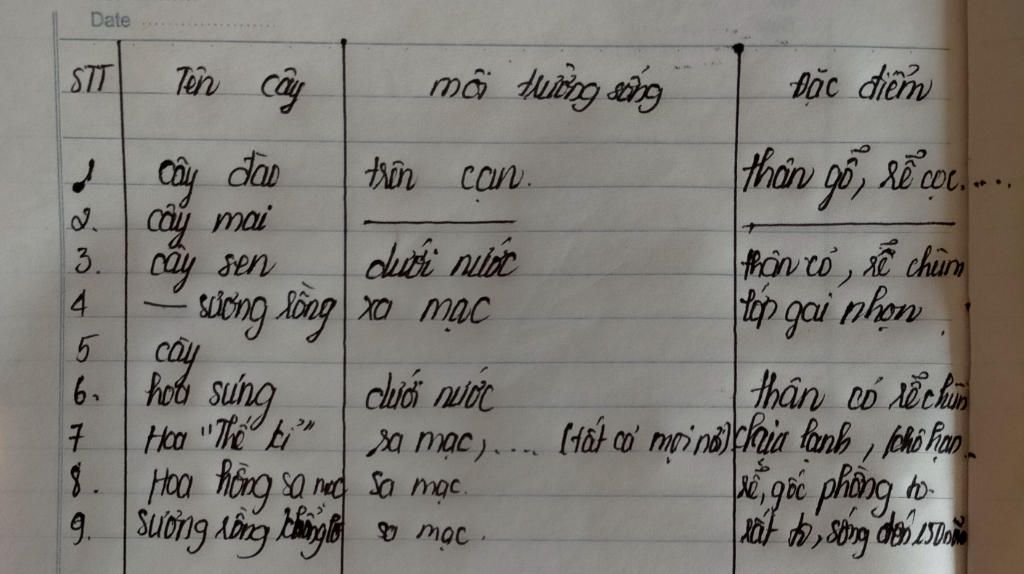 Date
STT Tên cây môi trường sống Đặc điểm
1 cây đào trên cạn. thân gỗ, rễ cọc.....
2. cây mai
3. cây sen dưới nước thân cỏ, rễ chùm
4 — sương rồng xa mạc lớp gai nhọn
5 cây
6. hoa súng dưới nước thân cỏ rễ chùm
7 Hoa "Thế kỉ" sa mạc,.... (tất cả mọi nơi) chịu lạnh, khô hạn
8. Hoa hồng sa mạc sa mạc. rễ, gốc phồng to.
9. sương rồng khổng lồ sa mạc. rất to, sống đến 150 năm